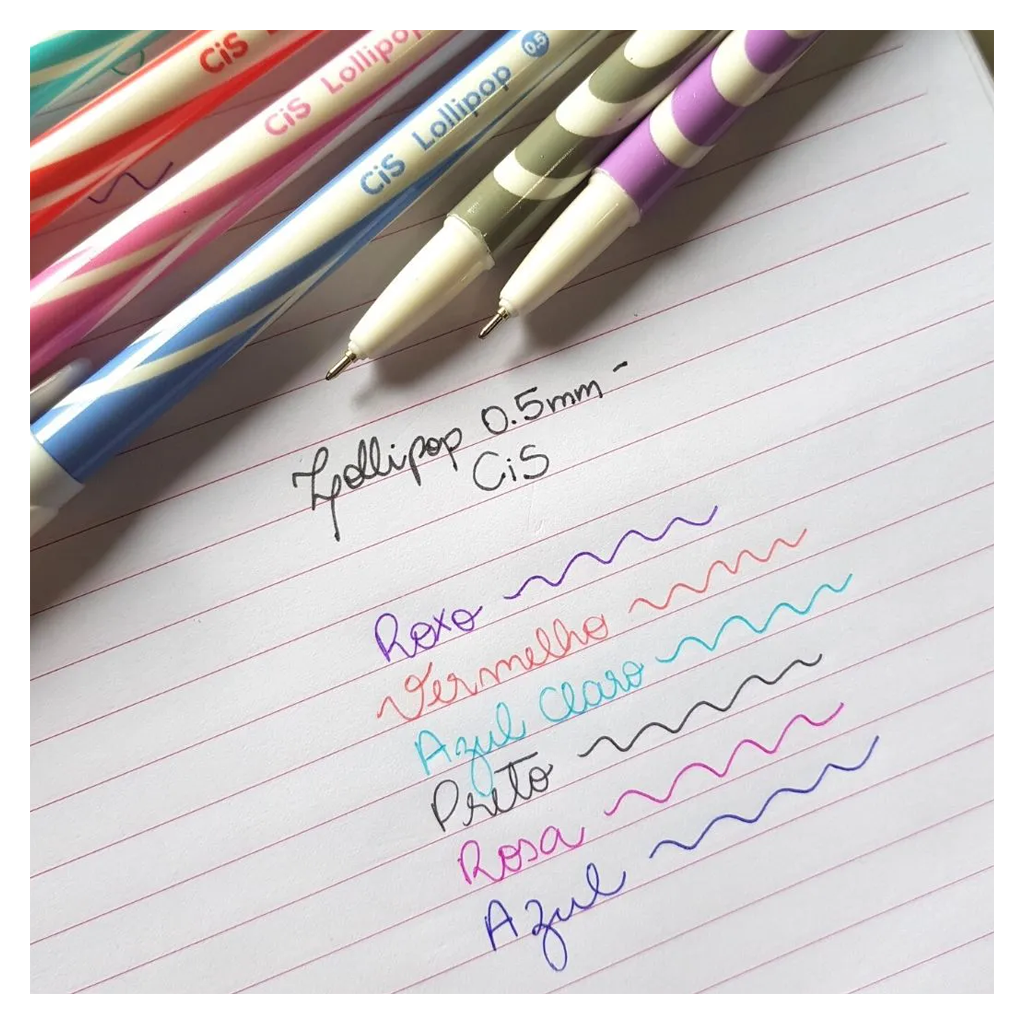 CiS
CiS Lollipop
CiS Lollipop 0.5
Lollipop 0.5mm -
CiS
Roxo
Vermelho
Azul Claro
Preto
Rosa
Azul